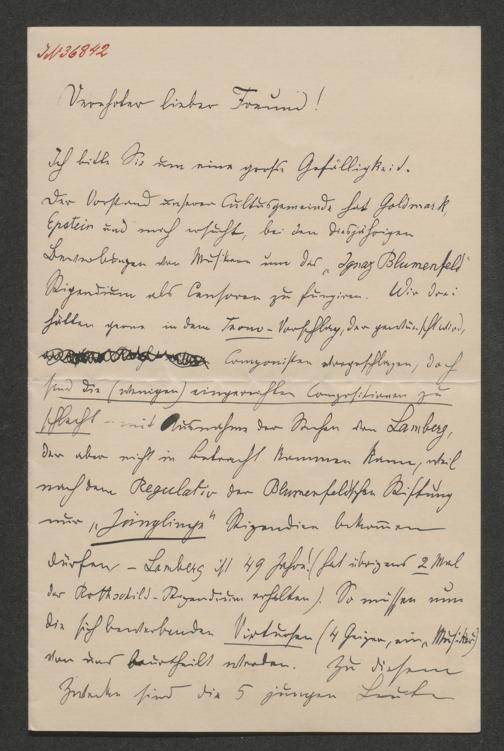 IN 36842
Verehrter lieber Freund!
Ich bitte Sie um eine große Gefälligkeit.
Der Vorstand unserer Cultusgemeinde hat Goldmark,
Epstein und mich ersucht, bei den diesjährigen
Bewerbungen von Musikern um das "Ignaz Blumenfeld"
Stipendium als Censoren zu fungiren. Wir drei
hätten gerne in dem Terno-Vorschlag, der gewünscht wird,
Componisten vorgeschlagen, doch
sind die (wenigen) eingereichten Compositionen zu
schlecht - mit Ausnahme der Sachen von Lamberg,
der aber nicht in Betracht kommen kann, weil
nach dem Regulativ der Blumenfeldschen Stiftung
nur "Jünglinge" Stipendien bekommen
dürfen - Lamberg ist 49 Jahre! (hat übrigens 2 Mal
das Rothschild-Stipendium erhalten). So müssen nun
die sich bewerbenden Virtuosen (4 Geiger, ein "Musiker")
von uns beurtheilt werden. Zu diesem
Zwecke sind die 5 jungen Leute